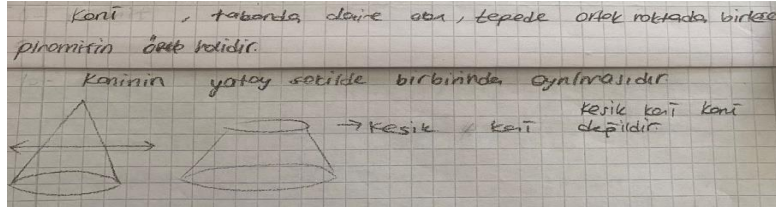 Koni , tabanda daire olan, tepede ortak noktada birleşen
piramitin özel halidir.
Koninin yatay şekilde birbirinden ayrılmasıdır
→ Kesik koni
kesik koni koni
değildir.